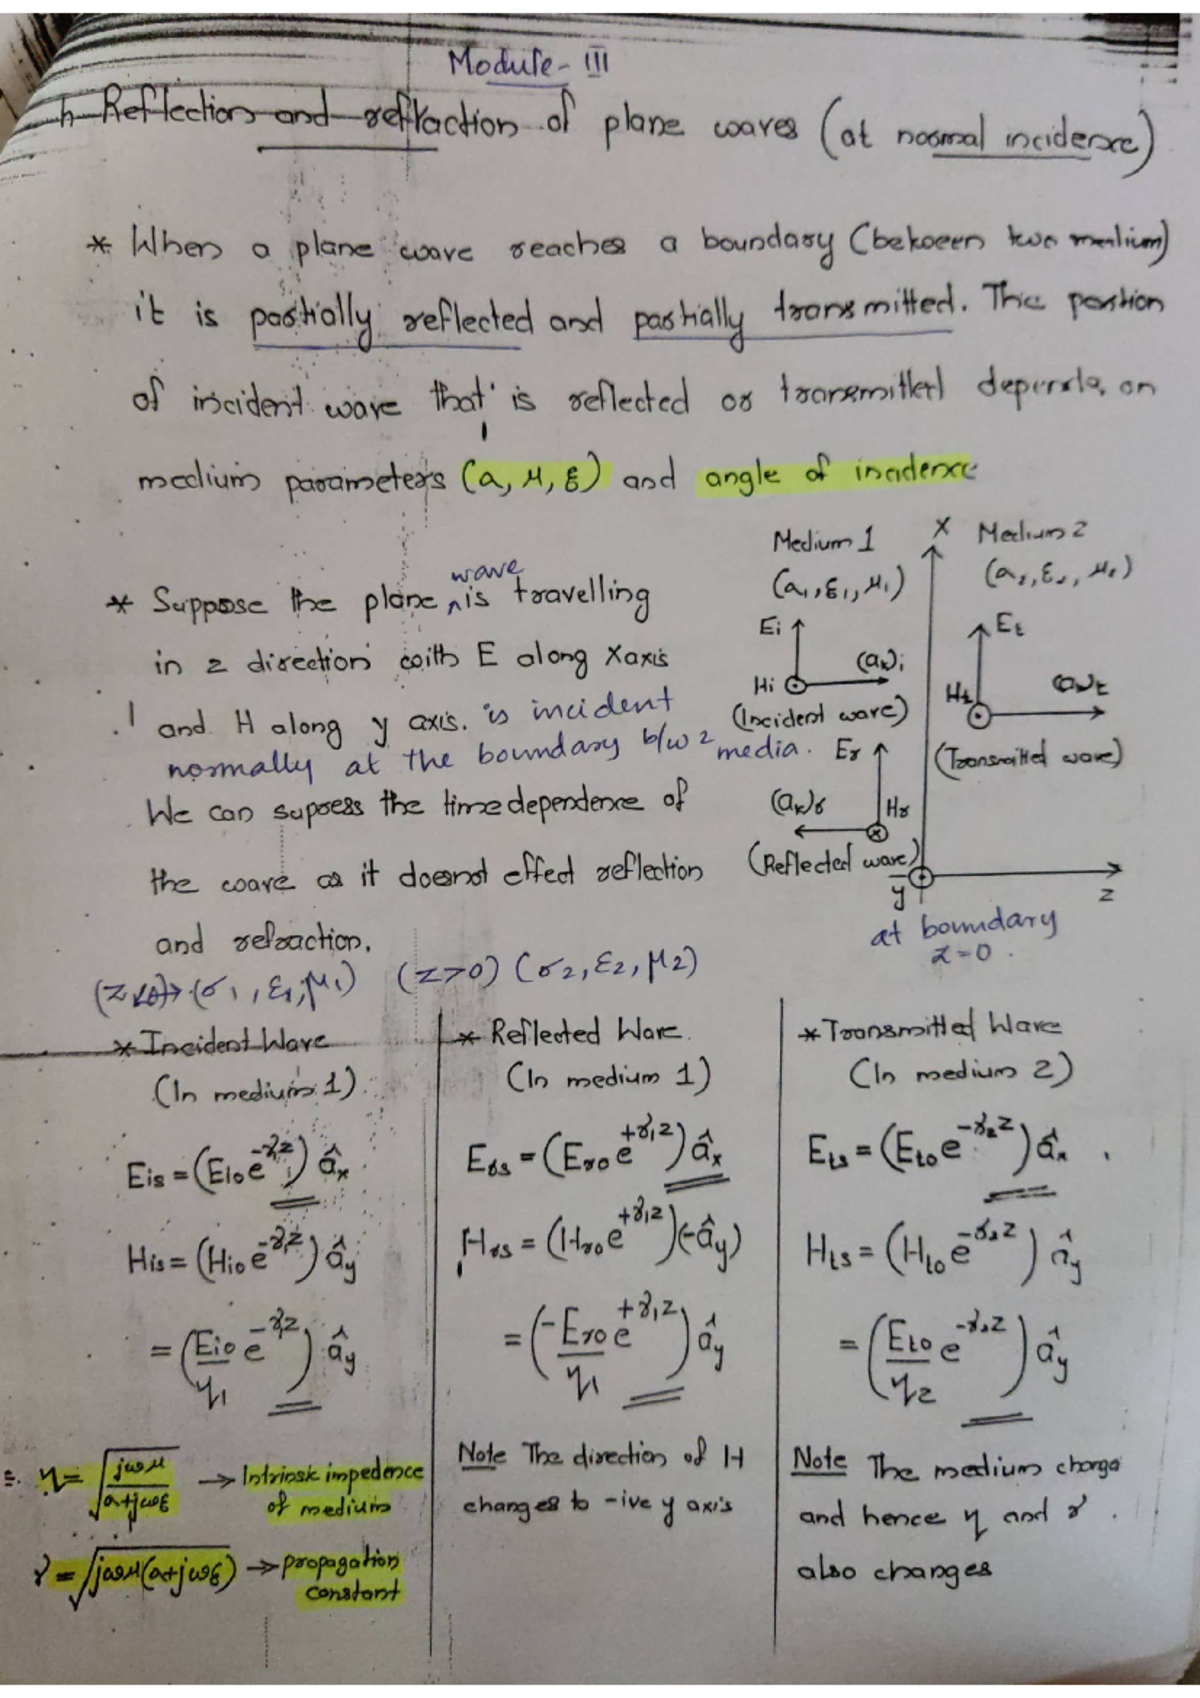 Module - III
Reflection and refraction of plane waves (at normal incidence)
* When a plane wave reaches a boundary (between two medium)
it is partially reflected and partially transmitted. The portion
of incident wave that is reflected or transmitted depends on
medium parameters (σ, μ, ε) and angle of incidence
Medium 1
X
Medium 2
(σ₁, ε₁, μ₁)
(σ₂, ε₂, μ₂)
* Suppose the plane wave is travelling
in z direction with E along X axis
and H along y axis. is incident
normally at the boundary b/w 2 media.
We can supress the time dependence of
the wave as it doesnot effect reflection
and refraction.
Ei
(ak)i
Hi
(Incident wave)
Et
Ht
(ak)t
(Transmitted wave)
Er
(ak)r
Hr
(Reflected wave)
y
z
at boundary
z=0.
(z<0) → (σ₁, ε₁, μ₁) (z>0) (σ₂, ε₂, μ₂)
* Incident Wave
(In medium 1)
Eis = (Eio e^{-γ₁z}) âx
His = (Hio e^{-γ₁z}) ây
= (Eio/η₁ e^{-γ₁z}) ây
η = √(jωμ/(σ+jωε)) → Intrinsic impedence
of medium
γ = √(jωμ(σ+jωε)) → propagation
constant
* Reflected Wave
(In medium 1)
Ers = (Ero e^{+γ₁z}) âx
Hrs = (Hro e^{+γ₁z})(-ây)
= (-Ero/η₁ e^{+γ₁z}) ây
Note The direction of H
changes to -ive y axis
* Transmitted Wave
(In medium 2)
Ets = (Eto e^{-γ₂z}) âx
Hts = (Hto e^{-γ₂z}) ây
= (Eto/η₂ e^{-γ₂z}) ây
Note The medium change
and hence η and γ
also changes